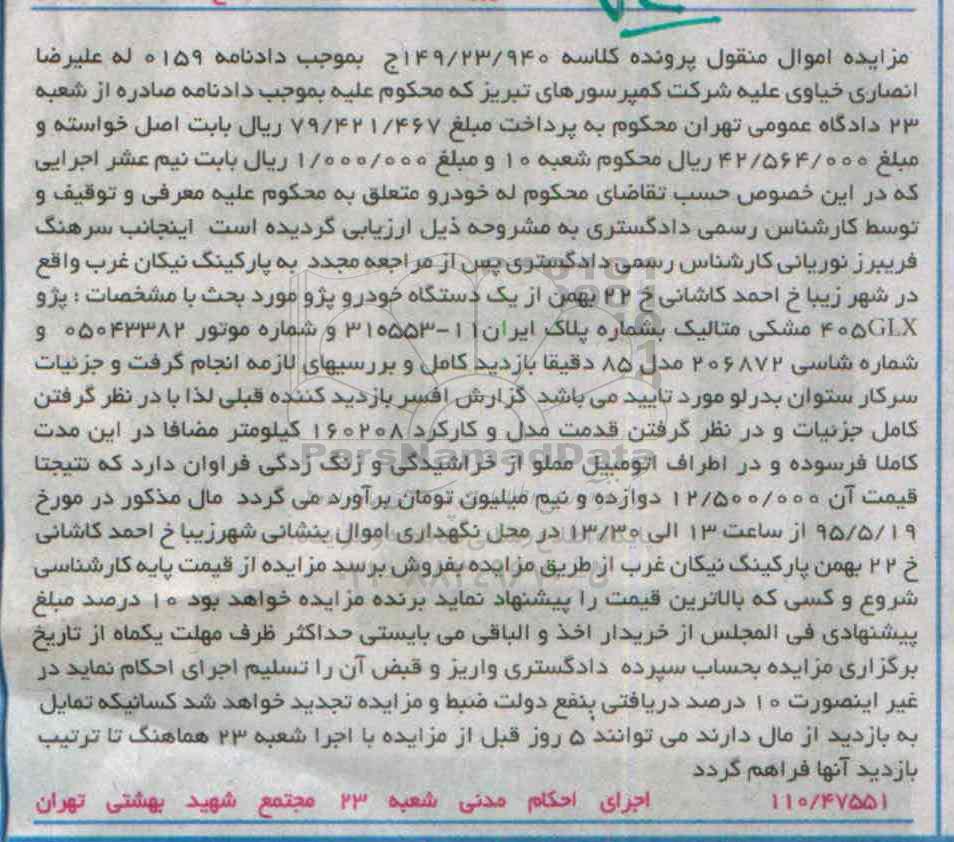 مزایده اموال منقول پرونده کلاسه ۱۴۹/۲۳/۹۴۰ج بموجب دادنامه ۰۱۵۹ له علیرضا
انصاری خیاوی علیه شرکت کمپرسورهای تبریز که محکوم علیه بموجب دادنامه صادره از شعبه
۲۳ دادگاه عمومی تهران محکوم به پرداخت مبلغ ۷۹/۴۲۱/۴۶۷ ریال بابت اصل خواسته و
مبلغ ۴۲/۵۶۴/۰۰۰ ریال محکوم شعبه ۱۰ و مبلغ ۱/۰۰۰/۰۰۰ ریال بابت نیم عشر اجرایی
که در این خصوص حسب تقاضای محکوم له خودرو متعلق به محکوم علیه معرفی و توقیف و
توسط کارشناس رسمی دادگستری به مشروحه ذیل ارزیابی گردیده است اینجانب سرهنگ
فریبرز نوریانی کارشناس رسمی دادگستری پس از مراجعه مجدد به پارکینگ نیکان غرب واقع
در شهر زیبا خ احمد کاشانی خ ۲۲ بهمن از یک دستگاه خودرو پژو مورد بحث با مشخصات : پژو
۴۰۵GLX مشکی متالیک بشماره پلاک ایران۱۱-۳۱۵۵۵۳ و شماره موتور ۰۵۰۴۳۳۸۲ و
شماره شاسی ۲۰۶۸۷۲ مدل ۸۵ دقیقا بازدید کامل و بررسیهای لازمه انجام گرفت و جزئیات
سرکار ستوان بدرلو مورد تایید می باشد گزارش افسر بازدید کننده قبلی لذا با در نظر گرفتن
کامل جزئیات و در نظر گرفتن قدمت مدل و کارکرد ۱۶۰۲۰۸ کیلومتر مضافا در این مدت
کاملا فرسوده و در اطراف اتومبیل مملو از خراشیدگی و زنگ زدگی فراوان دارد که نتیجتا
قیمت آن ۱۲/۵۰۰/۰۰۰ دوازده و نیم میلیون تومان برآورد می گردد مال مذکور در مورخ
۹۵/۵/۱۹ از ساعت ۱۳ الی ۱۳/۳۰ در محل نگهداری اموال بنشانی شهرزیبا خ احمد کاشانی
خ ۲۲ بهمن پارکینگ نیکان غرب از طریق مزایده بفروش برسد مزایده از قیمت پایه کارشناسی
شروع و کسی که بالاترین قیمت را پیشنهاد نماید برنده مزایده خواهد بود ۱۰ درصد مبلغ
پیشنهادی فی المجلس از خریدار اخذ و الباقی می بایستی حداکثر ظرف مهلت یکماه از تاریخ
برگزاری مزایده بحساب سپرده دادگستری واریز و قبض آن را تسلیم اجرای احکام نماید در
غیر اینصورت ۱۰ درصد دریافتی بنفع دولت ضبط و مزایده تجدید خواهد شد کسانیکه تمایل
به بازدید از مال دارند می توانند ۵ روز قبل از مزایده با اجرا شعبه ۲۳ هماهنگ تا ترتیب
بازدید آنها فراهم گردد
۱۱۰/۴۷۵۵۱ اجرای احکام مدنی شعبه ۲۳ مجتمع شهید بهشتی تهران
ParsNamadData